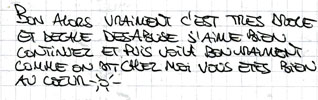 BON ALORS VRAIMENT C'EST TRES DROLE
ET DECALE DESABUSE J'AIME BIEN
CONTINUEZ ET PUIS VOILÀ BON VRAIMENT
COMME ON DIT CHEZ MOI VOUS ETES BIEN
AU COEUR